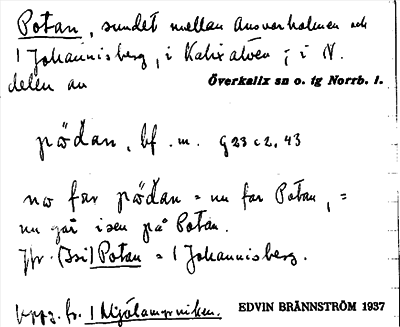 Potan, sundet mellan Ansvarholmen och
1 Johannisberg, i Kalixälven; i N.
delen av Överkalix sn o. tg Norrb. l.
pödan, bf. m. G 23 c 2, 43
no far pödan = nu far Potan, =
nu går isen på Potan.
Jfr. (Isi) Potan = 1 Johannisberg.
Uppg. fr. EDVIN BRÄNNSTRÖM 1937